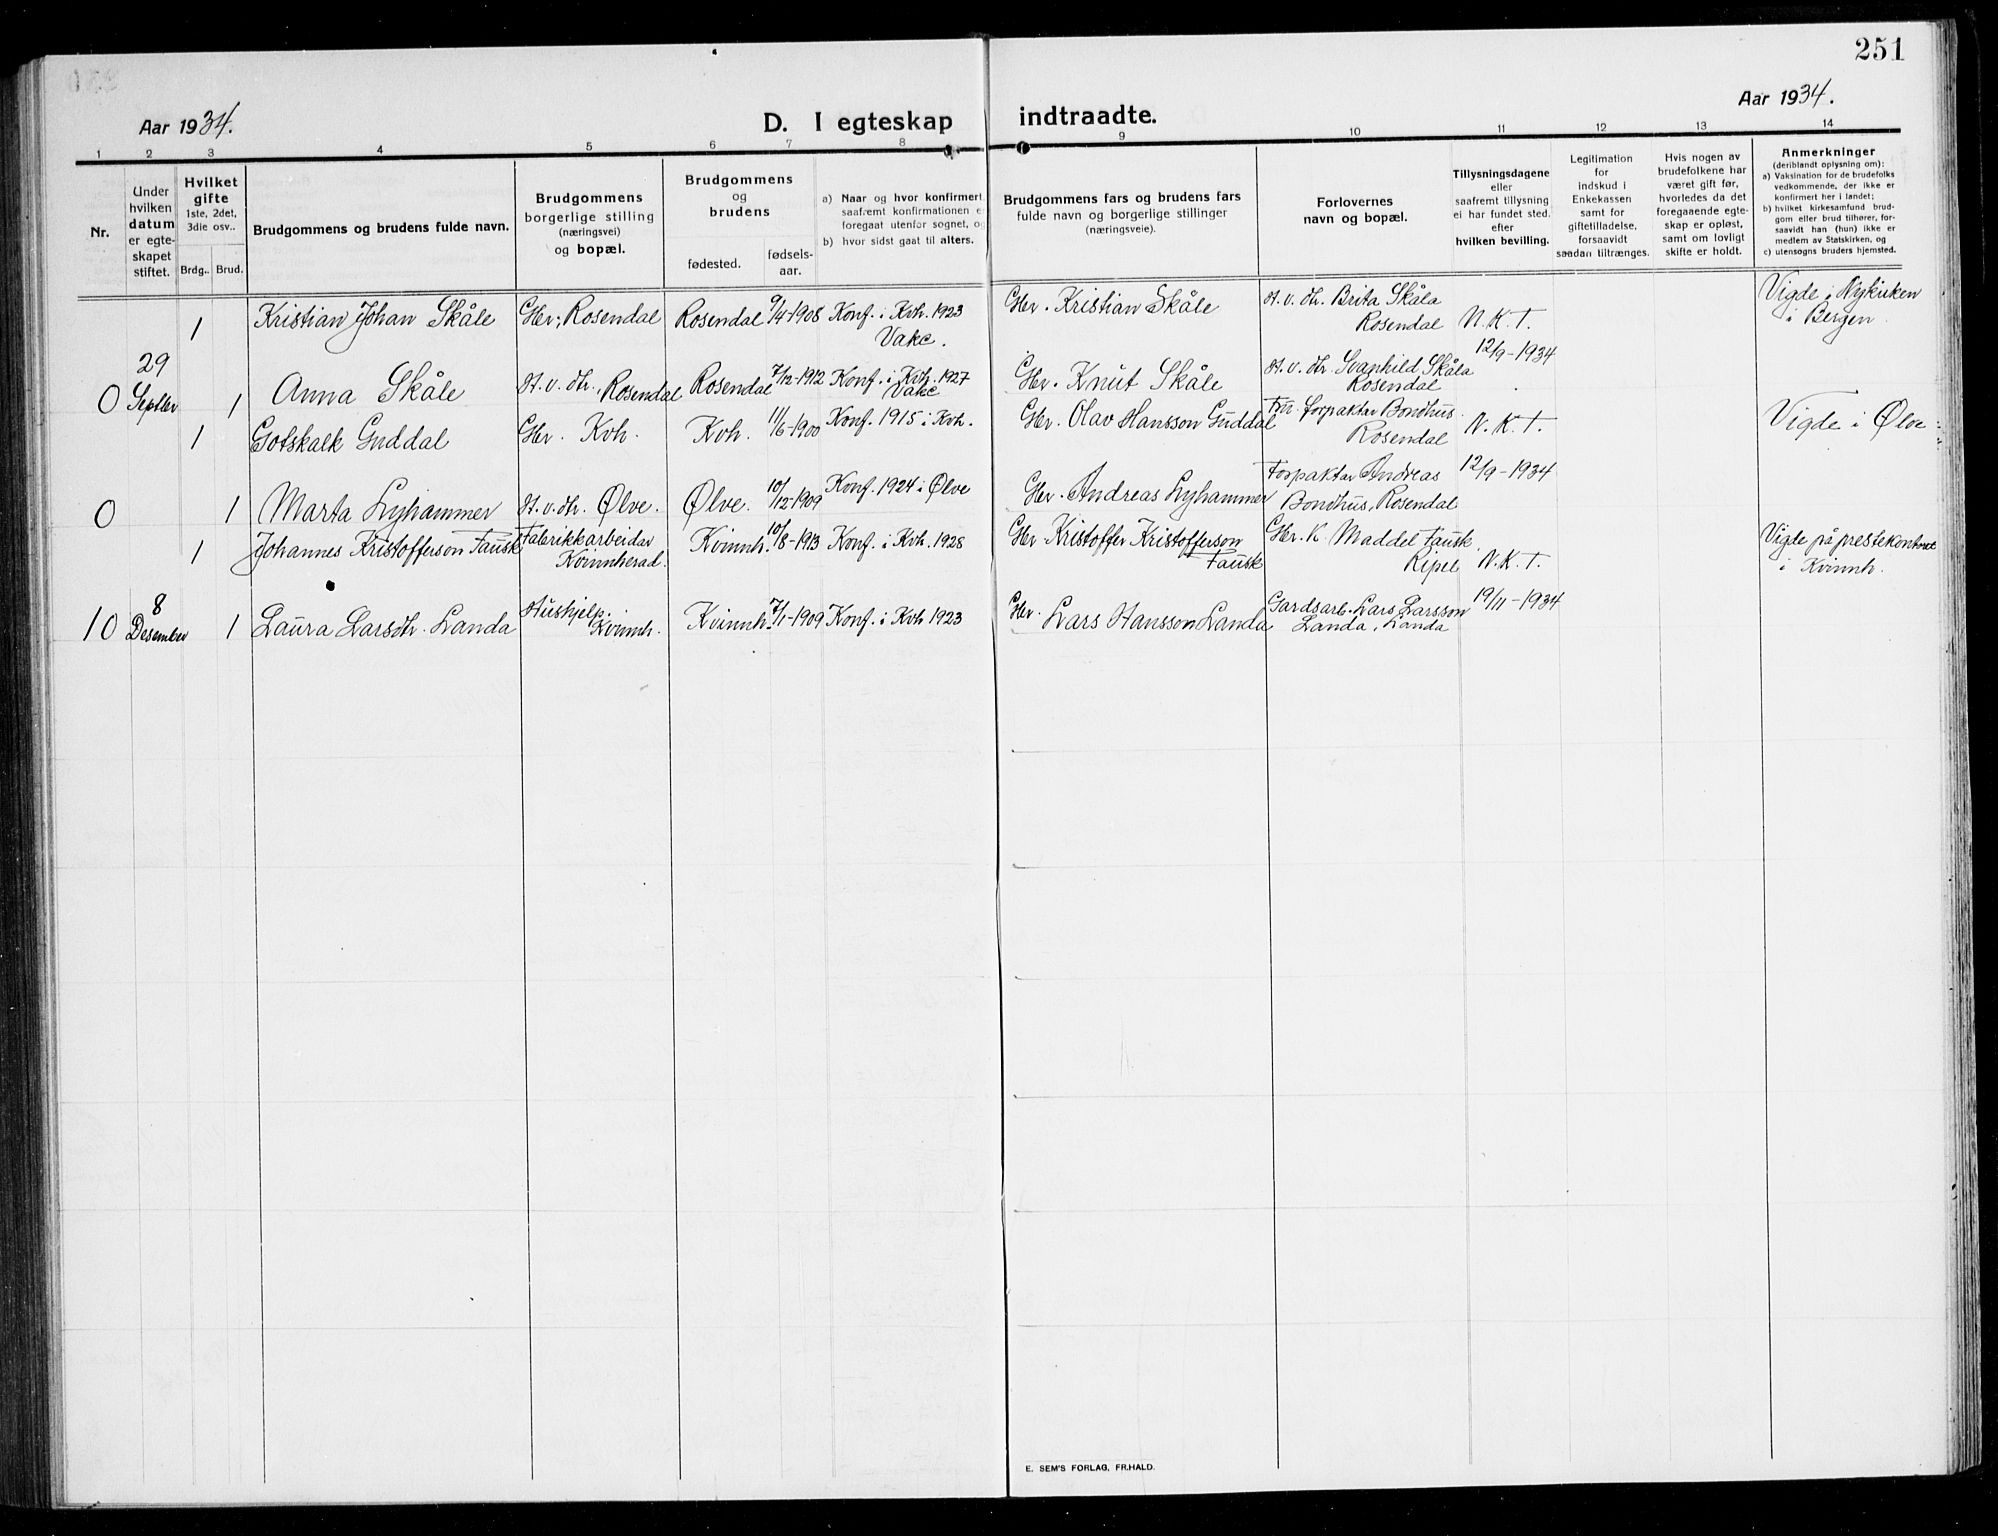 251
Aar 1934.
D. I egteskap indtraadte.
Aar 1934.
1 2 3 4 5 6 7 8 9 10 11 12 13 14
Nr.
Under
hvilken
datum
er egte-
skapet
stiftet.
Hvilket
gifte
1ste, 2det,
3die osv..
Brdg.. Brud.
Brudgommens og brudens fulde navn.
Brudgommens
borgerlige stilling
(næringsvei)
og bopæl.
Brudgommens
og
brudens
fødested.
fødsels-
aar.
a) Naar og hvor konfirmert,
saafremt konfirmationen e
foregaat utenfor sognet, og
b) hvor sidst gaat til alters.
Brudgommens fars og brudens fars
fulde navn og borgerlige stillinger
(næringsveie).
Forlovernes
navn og bopæl.
Tillysningsdagene
eller
saafremt tillysning
ei har fundet sted.
efter
hvilken bevilling.
Legitimation
for
indskud i
Enkekassen
samt for
giftetilladelse,
forsaavidt
saadan tiltrænges.
Hvis nogen av
brudefolkene har
været gift før,
hvorledes da det
foregaaende egte-
skap er opløst,
samt om lovligt
skifte er holdt.
Anmerkninger
(deriblandt oplysning om):
a) Vaksination for de brudefolks
vedkommende, der ikke er
konfirmert her i landet;
b) hvilket kirkesamfund brud-
gom eller brud tilhører, for-
saavidt han (hun) ikke er
medlem av Statskirken, og
c) utensogns bruders hjemsted.
1 Kristian Johan Skåle Gbr., Rosendal Rosendal 9/4-1908 Konf. i Kvh. 1923
Vakc.
Gbr. Kristian Skåle
st. v. dtr. Brita Skåla
Rosendal
N. K. T.
12/9-1934
Vigde i Nykirken
i Bergen.
29
0 Septbr 1 Anna Skåle st. v. dtr., Rosendal Rosendal 7/12-1912 Konf. i Kvh. 1927
Vakc
Gbr. Knut Skåle
st. v. dtr. Svanhild Skåla
Rosendal
1 Gotskalk Guddal Gbr. Kvh. Kvh. 11/6-1900 Konf. 1915 i Kvh.
Gbr. Olav Hansson Guddal
Fru forpaktar Bondhus
Rosendal
N. K. T.
12/9-1934
Vigde i Ølve
0 1 Marta Lyhammer st. v. dtr. Ølve. Ølve. 10/12-1909 Konf. 1924 i Ølve
Gbr. Andreas Lyhammer
Forpaktar Andreas
Bondhus, Rosendal
1 Johannes Kristofferson Fausk Fabrikkarbeidar
Kvinnherad.
Kvinnh. 10/8-1913 Konf. i Kvh. 1928
Gbr Kristoffer Kristofferson
Fausk
Gbr. K. Maddel Fausk,
Ripel
N. K. T.
19/11-1934
Vigde på prestekontoret
i Kvinnh.
8
10 Desember 1 Laura Larsdtr. Landa Hushjelp.
Kvinnh.
Kvinnh. 7/1-1909 Konf. i Kvh 1923
Gbr. Lars Hansson Landa
Gardsarb. Lars Larsson
Landa, Landa
E. SEM'S FORLAG, FR.HALD.